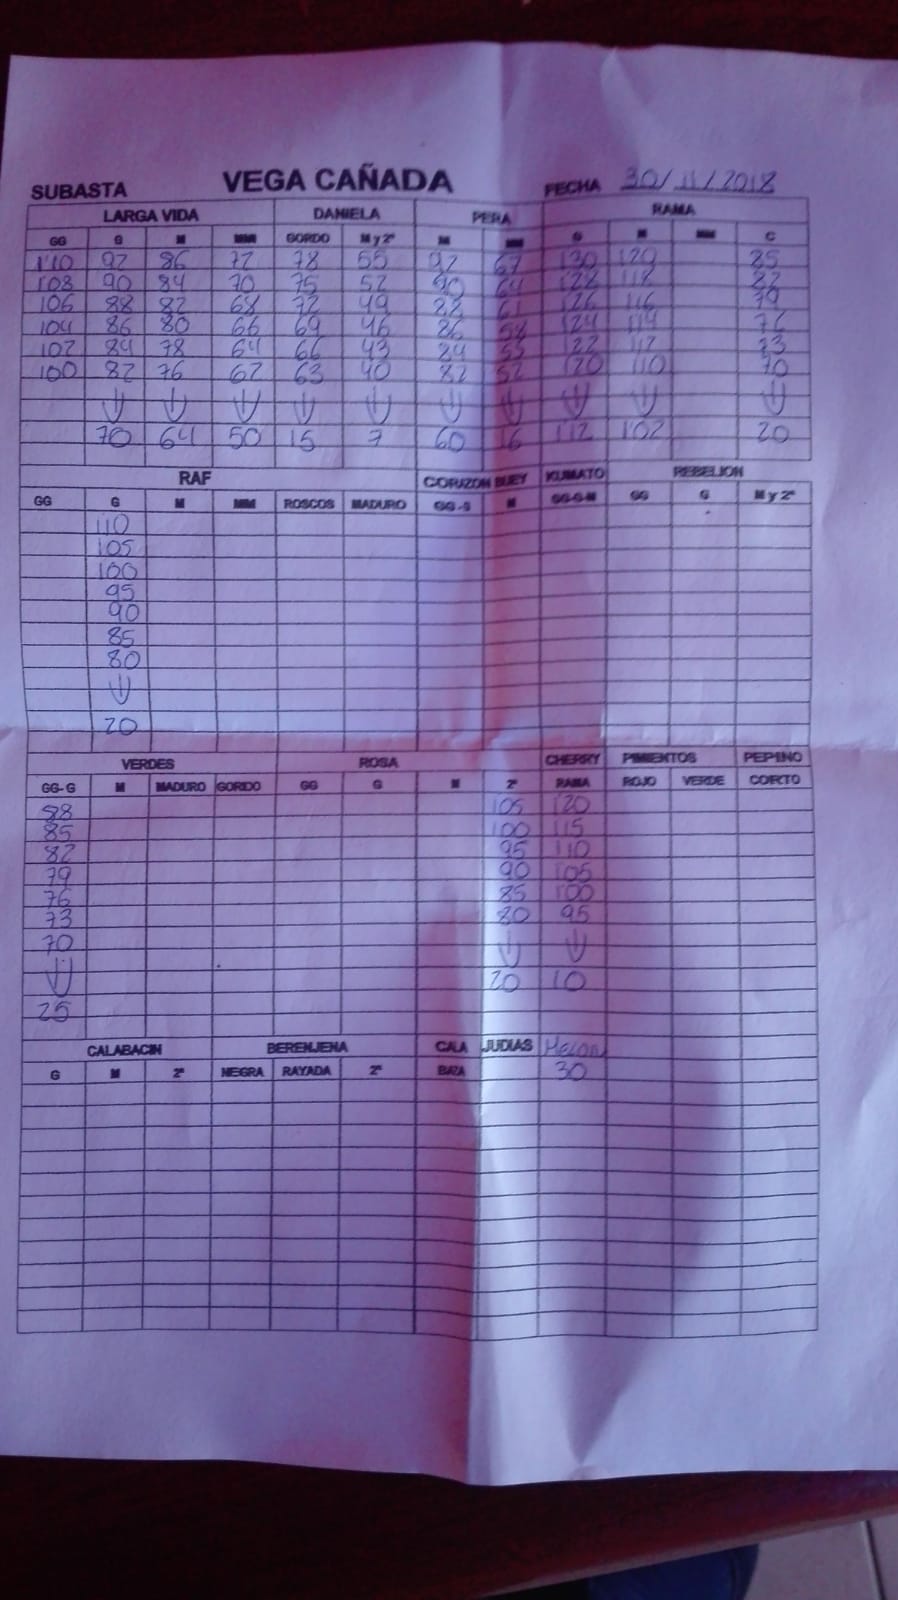 SUBASTA VEGA CAÑADA FECHA 30/11/2018
LARGA VIDA DANIELA PERA RAMA
GG G M MM GORDO M y 2ª M MM G M MM C
110 92 86 72 78 55 92 67 130 120 85
108 90 84 70 75 52 90 64 128 118 82
106 88 82 68 72 49 88 61 126 116 79
104 86 80 66 69 46 86 58 124 114 76
102 84 78 64 66 43 84 55 122 112 73
100 82 76 62 63 40 82 52 120 110 70
↓ ↓ ↓ ↓ ↓ ↓ ↓ ↓ ↓ ↓
70 64 50 15 7 60 16 112 102 20
RAF CORAZON BUEY KUMATO REBELION
GG G M MM ROSCOS MADURO GG-G M GG-G-M GG G M y 2ª
110
105
100
95
90
85
80
↓
20
VERDES ROSA CHERRY PIMIENTOS PEPINO
GG-G M MADURO GORDO GG G M 2ª RAMA ROJO VERDE CORTO
88 105 120
85 100 115
82 95 110
79 90 105
76 85 100
73 80 95
70 ↓ ↓
↓ 20 10
25
CALABACIN BERENJENA CALA JUDIAS Melon
G M 2ª NEGRA RAYADA 2ª BAZA 30